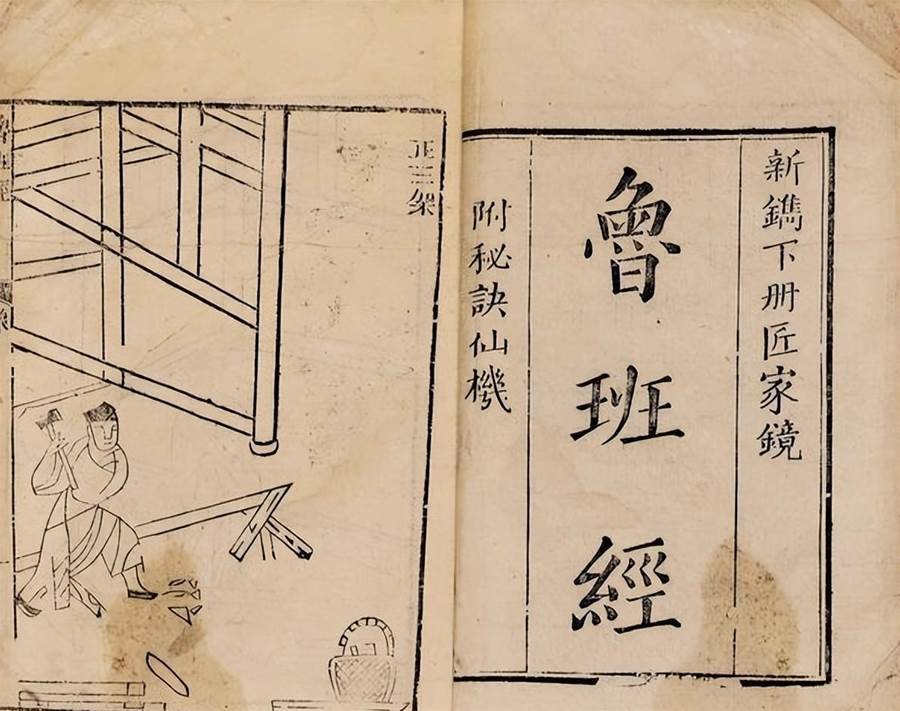 新鐫下册匠家鏡
魯班經
附秘訣仙機
正三架